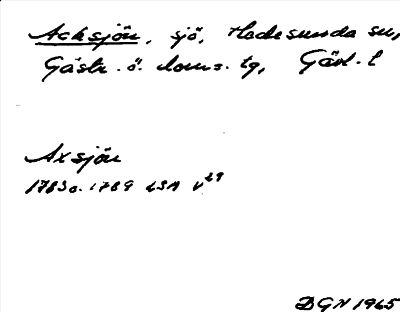 Acksjön, sjö, Hedesunda sn,
Gästr. ö. doms. tg, Gävl. l
Axsjön
1783 o. 1789 LSA V29
DGN 1965